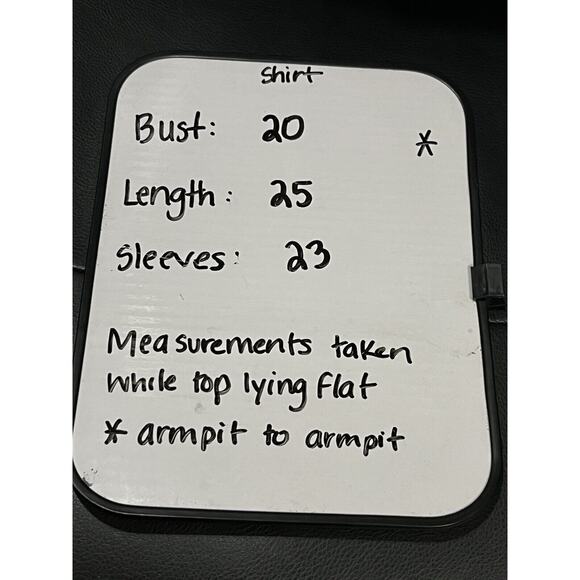 Shirt
Bust: 20 *
Length: 25
Sleeves: 23
Measurements taken
while top lying flat
* armpit to armpit